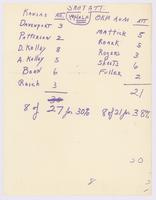 SHOT ATT.
KANSAS ATT. OKLAHOMA ATT
Davenport 3
Patterson 2
D. Kelley 8
A. Kelley 5
Born 6
Reich 3
Mattick 5
Roark 5
Rogers 3
Sheets 6
Fuller 2
21
8 of 27 for 30% 8 of 21 for 38%
20
8